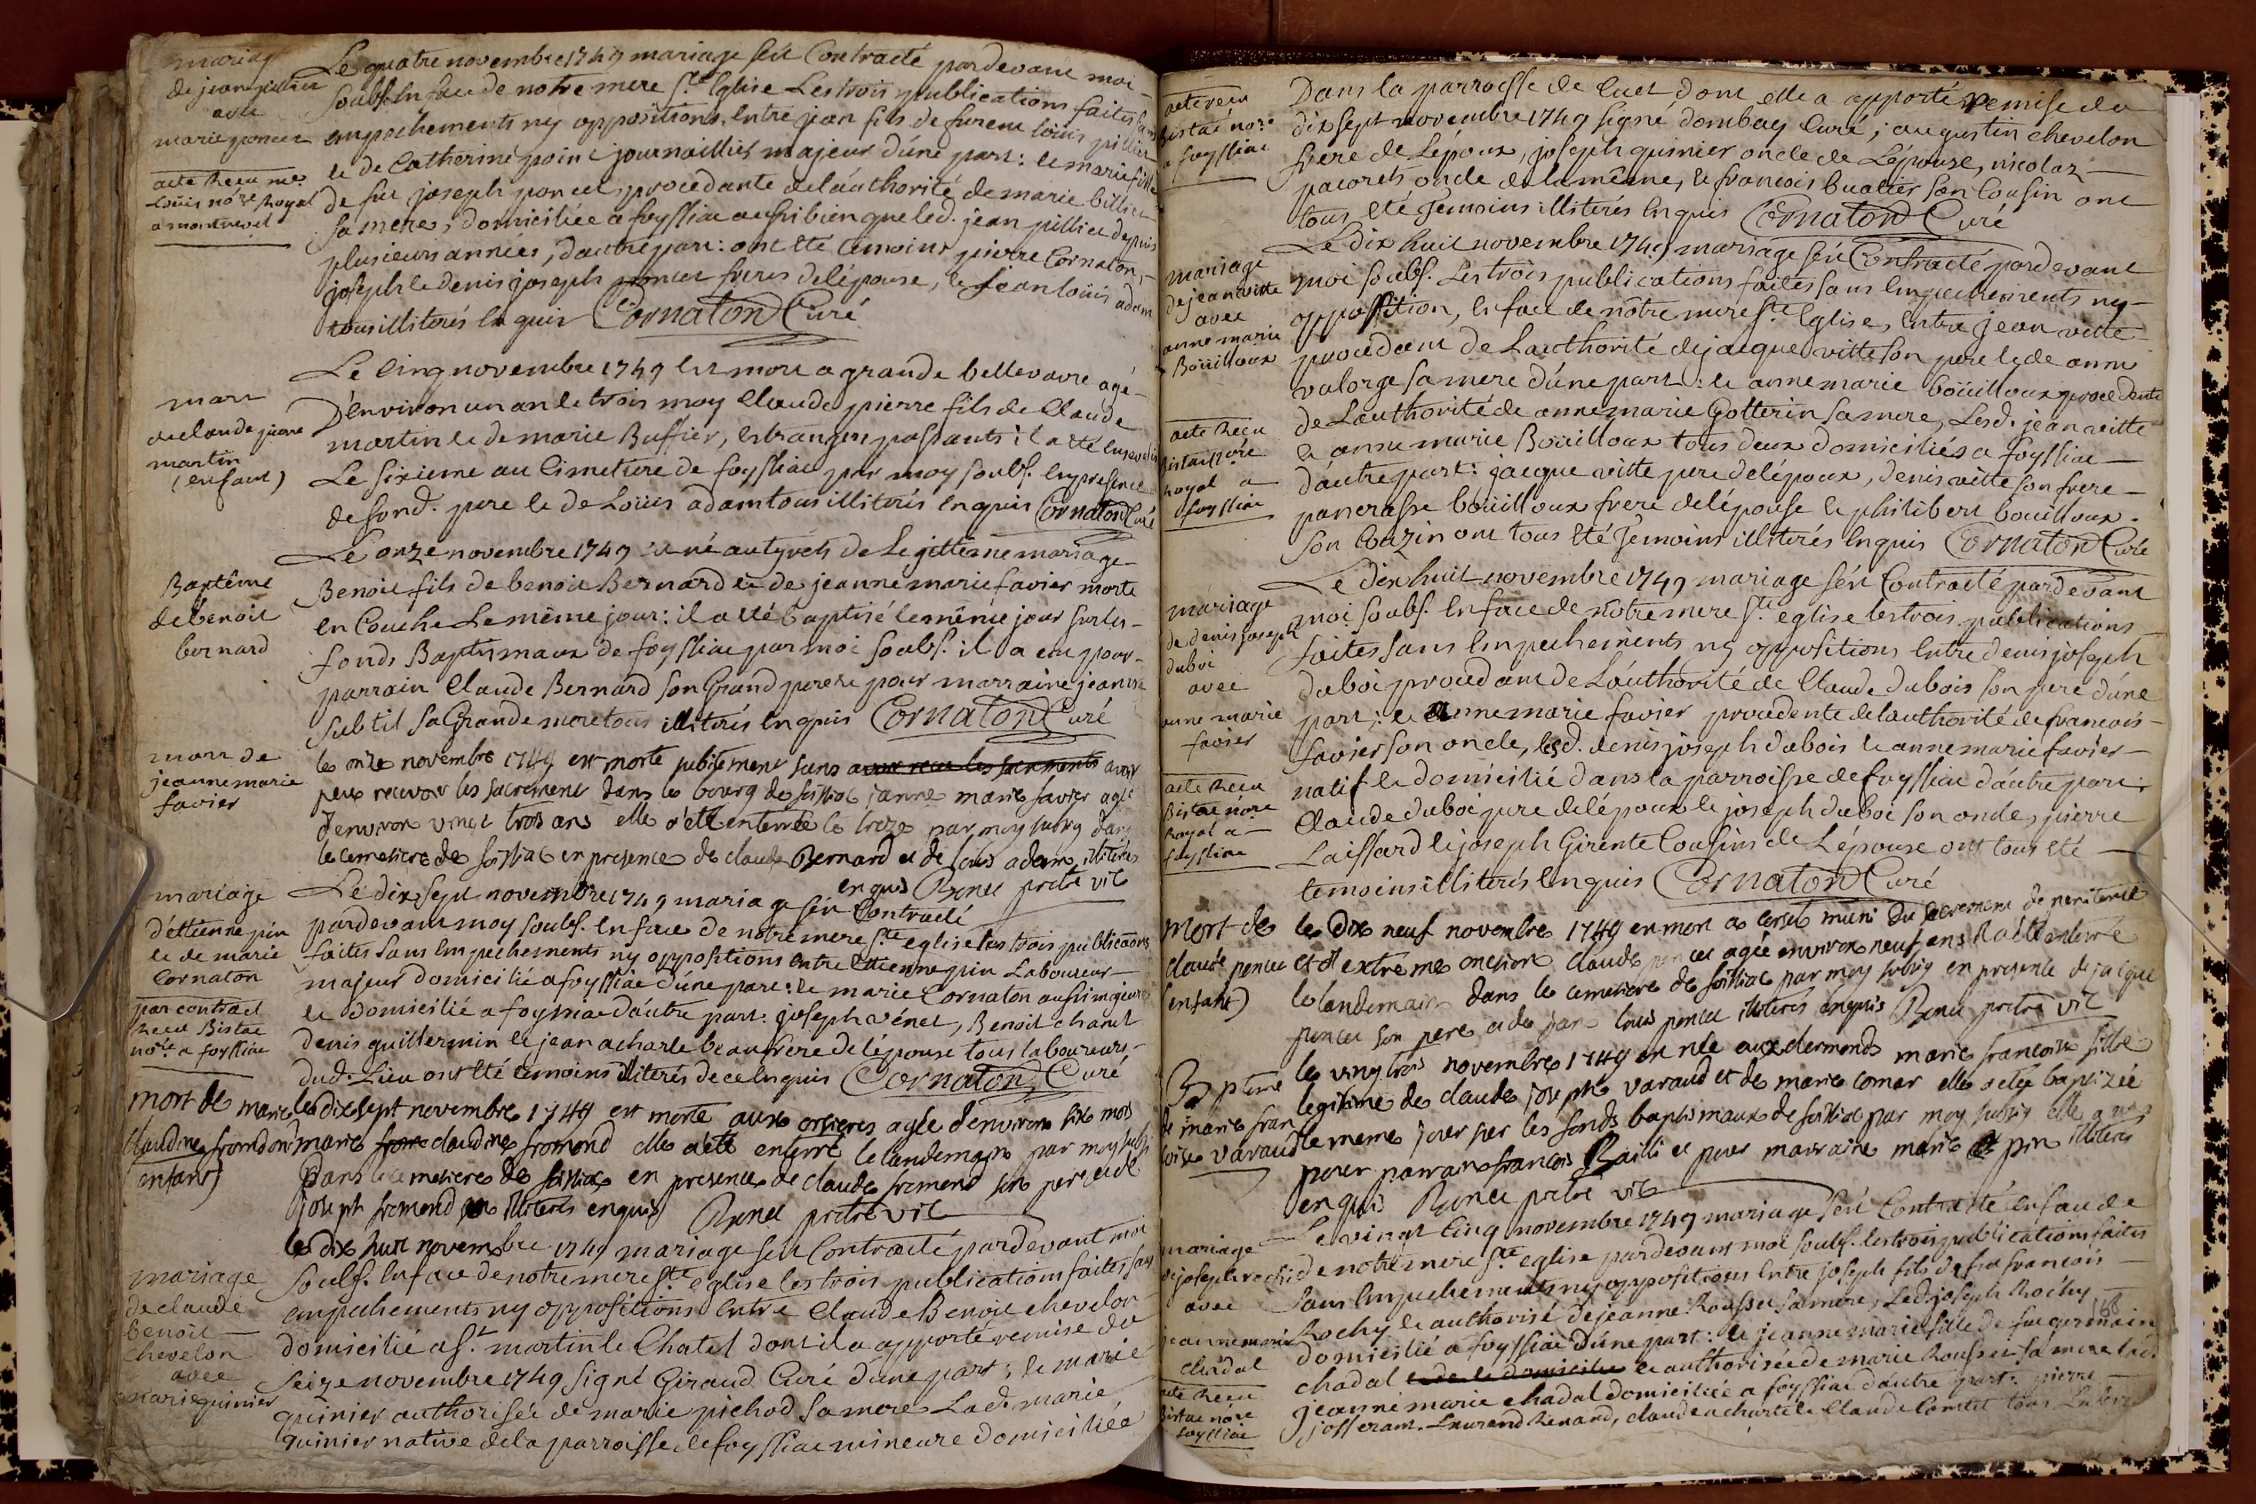 mariage
de jean pillier
avec
marie poncet
acte Recu me.
Loüis no.re Royal
a montrevel
Le quatre novembre 1749 mariage feu Contracté pardevant moi
soubs. En face de notre mere Ste Eglise Les trois publications faites sans
empechements ny oppositions. Entre jean fils de furent loüis pillier
et de Catherine point journaillier majeur d'une part: et marie fille
de feu joseph poncet procedante de l'authorité de marie billiet
sa mere, domiciliée a foyssiac aussi bien que led. jean pillier depuis
plusieurs années, d'autre part: ont été temoins pierre Cornaton,
joseph et denis joseph poncet freres de l'épouse, et jean loüis adam
tous illiterés Enquis Cornaton Curé
mort
de claude pierre
martin
(enfant)
Le Cinq novembre 1749 Est mort a grande bellevavre agé
D'environ un an et trois moy Claude pierre fils de Claude
martin et de marie Buffier, Estrangers passants: il a été Enseveli
Le sixieme au Cimetiere de foyssiac par moy soubs. En presence
de sond. pere et de Loüis adam tous illiterés Enquis Cornaton Curé
Baptême
de benoit
bernard
Le onze novembre 1749 est né au tyrets de Legitteme mariage
Benoit fils de benoit Bernard et de jeanne marie favier morte
en Couche Le même jour: il a été baptisé le même jour sur les
fonds Baptismaux de foyssiac par moi soubs. il a eu pour
parrain Claude Bernard son Grand pere et pour marraine jeanne
subtil sa Grande mere tous illiterés Enquis Cornaton Curé
mort de
jeanne marie
favier
le onze novembre 1749 est morte subitement sans avoir recu les sacrements avoir
peux recevoir les sacrement dans le bourg de foissiac janne marie favier agée
denviron vingt trois ans elle a été enterrée le treze par moy subsig dans
le cemetiere de foissiac en presence de claude Bernard et de louis adam illiterés
enquis Ponce pretre vic
mariage
d'étienne pin
et de marie
Cornaton
par contract
Recu Bistac
no.re a foyssiac
Le dix sept novembre 1749 mariage feu Contracté
pardevant moy soubs. En face de notre mere Ste eglise Les trois publicaôns
faites sans Empechements ny oppositions Entre Etienne pin Laboureur
majeur domicilié a foyssiac d'une part: et marie Cornaton aussi majeure
et domicilié a foyssiac d'autre part: joseph vénet, Benoit charut
denis guillermin et jean acharle beaufrere de l'épouse tous laboureurs
dud. Lieu ont été temoins illiterés de ce Enquis Cornaton Curé
mort de marie
claudine fromond
enfant)
le dix sept novembre 1749 est morte aux orsieres agée denviron six mois
marie claudine fromond elle a été enterré le landemain par moy subsi
Dans le cemetiere de foissiac en presence de claude fromond son pere et de
joseph fromond illiteres enquis Ponce pretre vic
mariage
de claude
benoit
Chevelon
avec
marie quinier
le dix huit novembre 1749 mariage feu Contracté pardevant moi
soubs. En face de notre mere Ste eglise les trois publications faites sans
empechements ny oppositions Entre Claude Benoit chevelon
domicilié a St. martin le Chatel dont il a apporté remise du
seize novembre 1749 signé Giraud Curé d'une part; et marie
quinier authorisée de marie pichod sa mere Lad. marie
quinier native de la parroisse de foyssiac mineure domiciliée
acte recu
bistac no.re
a foyssiac
Dans la parroisse de Cuet dont elle a apporté remise du
dix sept novembre 1749 signé dombay Curé; augustin chevelon
frere de L'époux, joseph quinier oncle de L'épouse, nicolas
pacoret oncle de la même, et francois buatier son Cousin ont
tous été Temoins illiterés Enquis Cornaton Curé
mariage
de jean vitte
avec
anne marie
Boüilloux
acte Recu
Bistac no.re
Royal a
foyssiac
Le dix huit novembre 1749 mariage feu Contracté pardevant
moi soubs. Les trois publications faites sans Empechements ny
opposition, En face de nôtre mere Ste Eglise, Entre jean vitte
procedant de L'authorité de jacque vitte son pere et de anne
valorge sa mere d'une part: et anne marie boüilloux procedente
de L'authorité de anne marie Gotterin sa mere, Lesd. jean vitte
et anne marie Boüilloux tous deux domiciliés a foyssiac
d'autre part: jacque vitte pere de l'époux, denis vitte son frere
pancrasse boüilloux frere de l'épouse et philibert bouilloux
son Couzin ont tous été Temoins illiterés Enquis Cornaton Curé
mariage
de denis joseph
duboi
avec
anne marie
favier
acte Recu
Bistac no.re
Royal a
foyssiac
Le dix huit novembre 1749 mariage feu Contracté pardevant
moi soubs. En face de nôtre mere Ste. eglise les trois publications
faites sans Empechements ny oppositions Entre denis joseph
duboi procedant de L'authorité de Claude dubois son pere d'une
part; et anne marie favier procedente de l'authorité de francois
favier son oncle, lesd. denis joseph dubois et anne marie favier
natif et domicilié dans la parroisse de foyssiac d'autre part;
Claude duboi pere de l'époux et joseph duboi son oncle, pierre
Laissard et joseph Girente Cousins de L'épouse ont tous été
temoins illiterés Enquis Cornaton Curé
mort de
claude poncet
(enfant)
le dix neuf novembre 1749 en mort a corcel muni du sacrement de penitence
et d'extreme onction claude poncet agée environ neuf ans Il a été enterré
le landemain dans le cemetiere de foissiac par moy subsig en presence de jacque
poncet son pere et de jean louis poncet illiteres enquis Ponce pretre vic
Baptême
de marie fran
coise varaud
le vingt trois novembre 1749 en née aux dermonds marie francoise fille
legitime de claude joseph varaud et de marie comar elle a été baptizée
le meme jour sur les fonds baptismaux de foissiac par moy subsig elle a eu
pour parrain francois Railli et pour marraine marie pin illiteres
enquis Ponce pretre vic
mariage
de joseph rochy
avec
jeanne marie
chadal
acte Recu
Bistac no.re
foyssiac
Le vingt Cinq novembre 1749 mariage feu Contracté en face de
de notre mere Ste. eglise pardevant moi soubs. les trois publications faites
sans Empechements ny oppositions Entre joseph fils de feu francois
Rochy et authorisé de jeanne Rousset sa mere, Led. joseph Rochy
domicilié a foyssiac d'une part: et jeanne marie fille de feu germain
chadal et authorisée de marie Rousset sa mere lad.
jeanne marie chadal domiciliée a foyssiac d'autre part: pierre
josserant. Laurend Renard, claude acharle et Claude Comtet tous
168